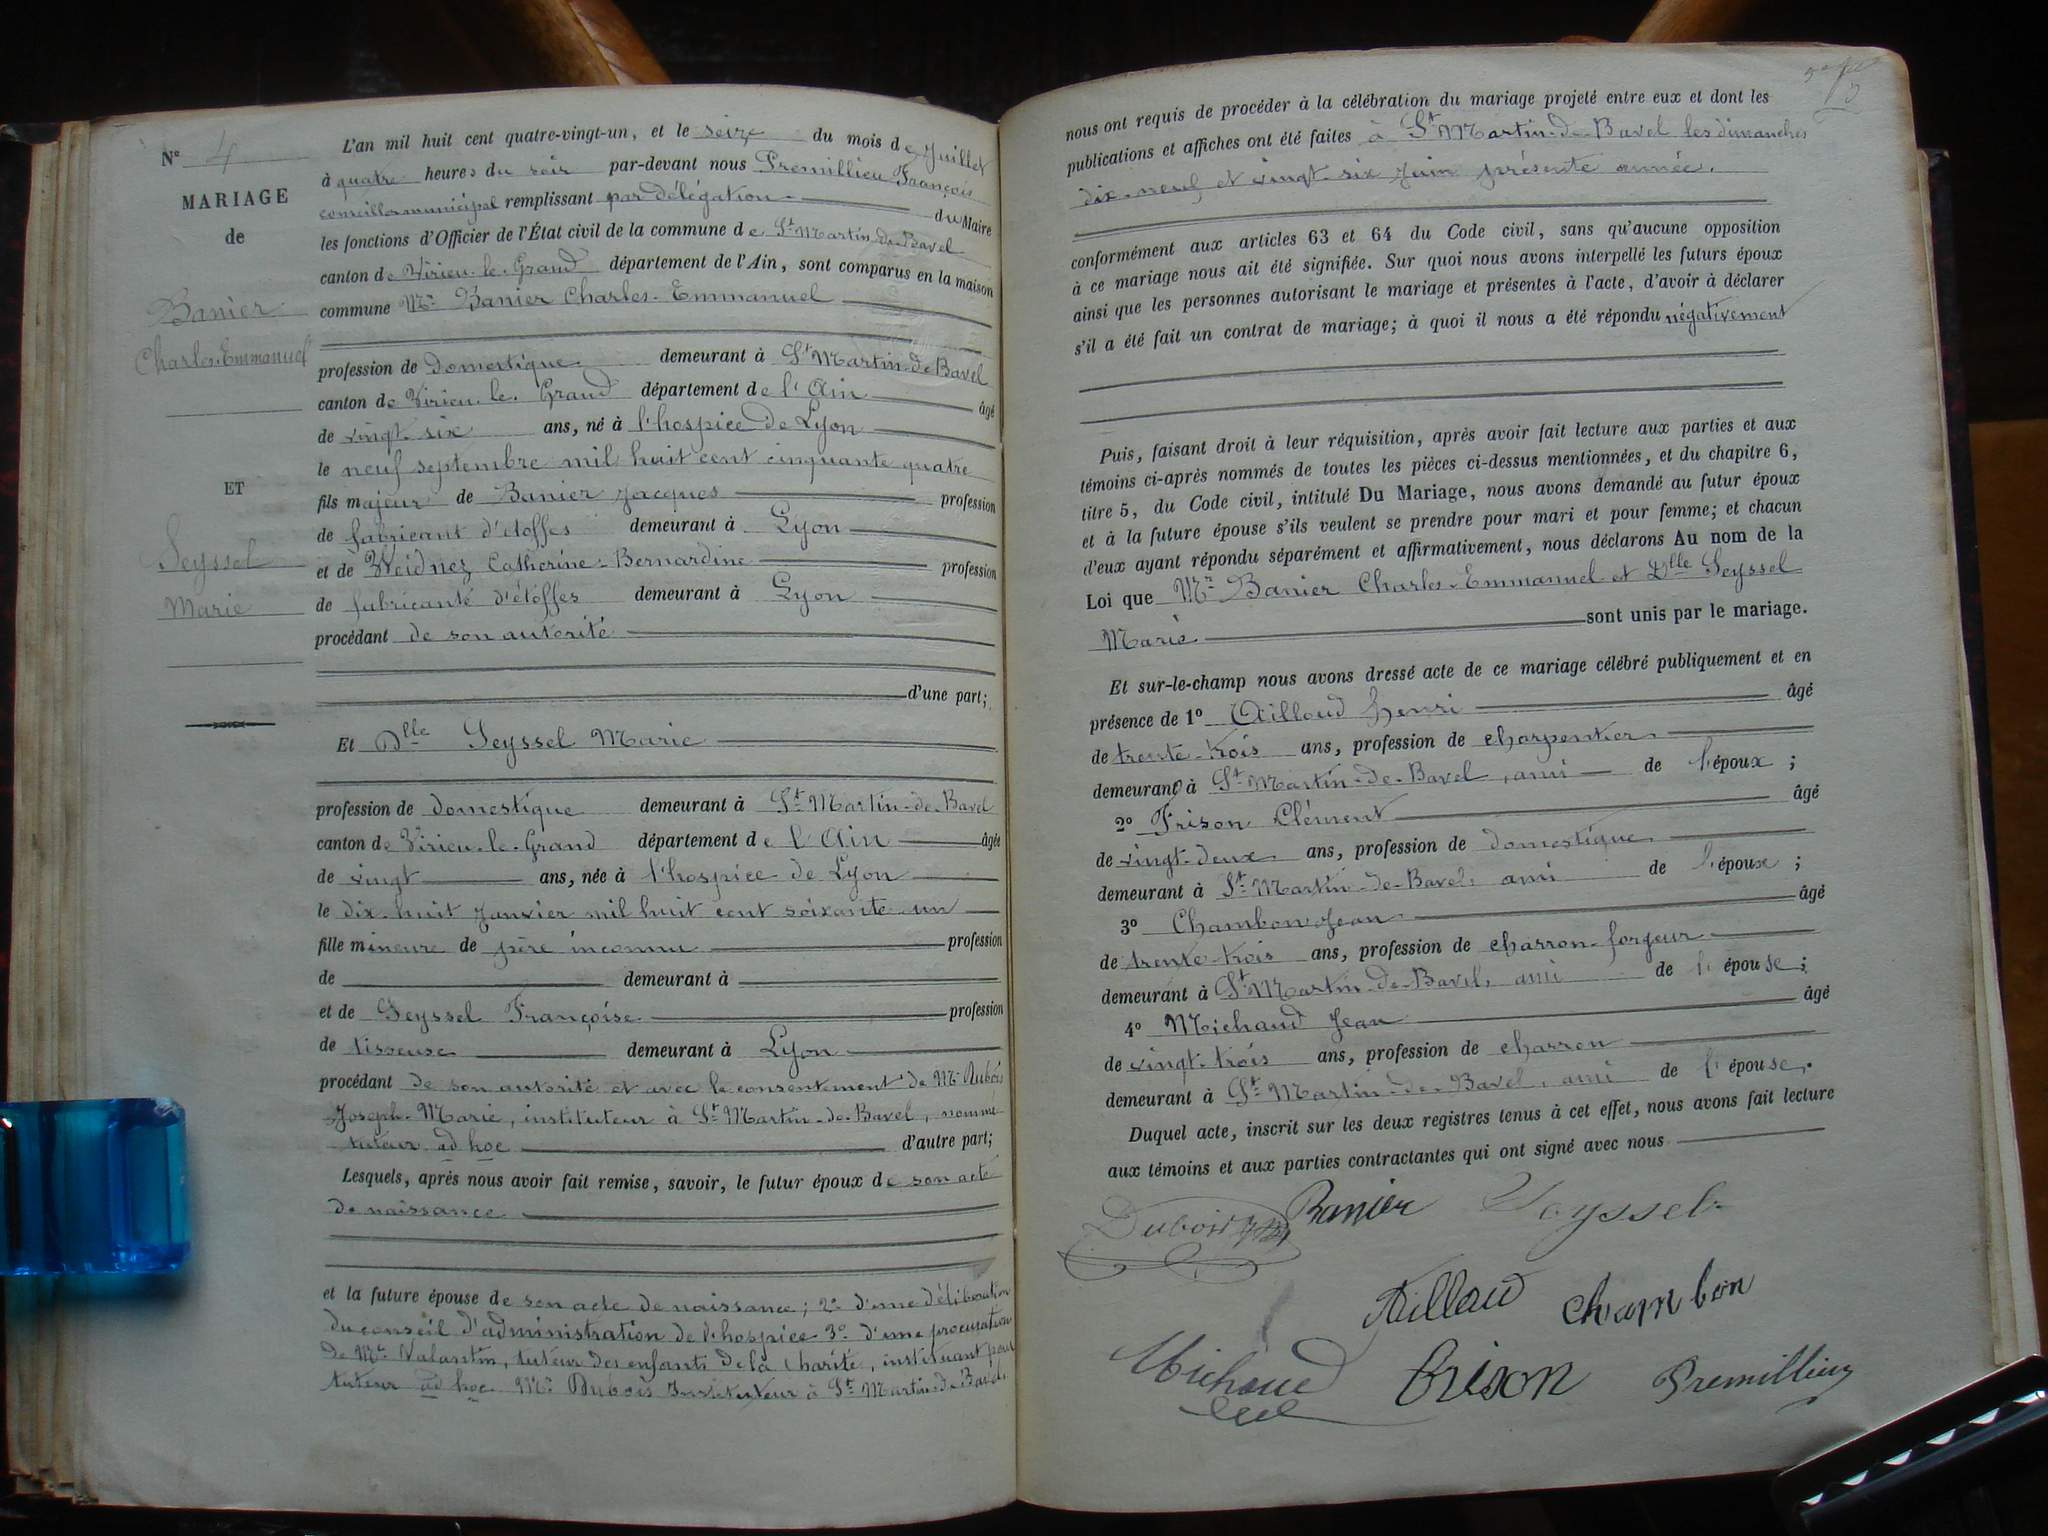 N° 4
MARIAGE
de
Banier
Charles-Emmanuel
ET
Seyssel
Marie
L'an mil huit cent quatre-vingt-un, et le seize du mois de Juillet
à quatre heures du soir par-devant nous Premillieu François
conseiller municipal remplissant par délégation du Maire
les fonctions d'Officier de l'État civil de la commune de St Martin-de-Bavel
canton de Virieu-le-Grand département de l'Ain, sont comparus en la maison
commune Mr Banier Charles-Emmanuel
profession de domestique demeurant à St Martin-de-Bavel
canton de Virieu-le-Grand département de l'Ain âgé
de vingt-six ans, né à l'hospice de Lyon
le neuf septembre mil huit cent cinquante quatre
fils majeur de Banier Jacques profession
de fabricant d'étoffes demeurant à Lyon
et de Weidnez Catherine-Bernardine profession
de fabricante d'étoffes demeurant à Lyon
procédant de son autorité
d'une part;
Et Dlle Seyssel Marie
profession de domestique demeurant à St Martin-de-Bavel
canton de Virieu-le-Grand département de l'Ain âgée
de vingt ans, née à l'hospice de Lyon
le dix-huit Janvier mil huit cent soixante-un
fille mineure de père inconnu profession
de demeurant à
et de Seyssel Françoise profession
de tisseuse demeurant à Lyon
procédant de son autorité et avec le consentement de Mr Dubois
Joseph-Marie, instituteur à St Martin-de-Bavel, nommé
tuteur ad hoc d'autre part;
Lesquels, après nous avoir fait remise, savoir, le futur époux de son acte
de naissance
et la future épouse de son acte de naissance; 2° d'une délibération
du conseil d'administration de l'hospice 3° d'une procuration
de Mr Valantin, tuteur des enfants de la Charité, instituant pour
tuteur ad hoc Mr Dubois Instituteur à St Martin-de-Bavel.
nous ont requis de procéder à la célébration du mariage projeté entre eux et dont les
publications et affiches ont été faites à St Martin-de-Bavel les dimanches
dix-neuf et vingt-six Juin présente année.
conformément aux articles 63 et 64 du Code civil, sans qu'aucune opposition
à ce mariage nous ait été signifiée. Sur quoi nous avons interpellé les futurs époux
ainsi que les personnes autorisant le mariage et présentes à l'acte, d'avoir à déclarer
s'il a été fait un contrat de mariage; à quoi il nous a été répondu négativement
Puis, faisant droit à leur réquisition, après avoir fait lecture aux parties et aux
témoins ci-après nommés de toutes les pièces ci-dessus mentionnées, et du chapitre 6,
titre 5, du Code civil, intitulé Du Mariage, nous avons demandé au futur époux
et à la future épouse s'ils veulent se prendre pour mari et pour femme; et chacun
d'eux ayant répondu séparément et affirmativement, nous déclarons Au nom de la
Loi que Mr Banier Charles-Emmanuel et Dlle Seyssel
Marie sont unis par le mariage.
Et sur-le-champ nous avons dressé acte de ce mariage célébré publiquement et en
présence de 1° Ailloud henri âgé
de trente-trois ans, profession de charpentier
demeurant à St Martin-de-Bavel, ami de l'époux ;
2° Frison Clément âgé
de vingt-deux ans, profession de domestique
demeurant à St Martin-de-Bavel, ami de l'époux ;
3° Chambon Jean âgé
de trente-trois ans, profession de charron-forgeur
demeurant à St Martin-de-Bavel, ami de l'épouse ;
4° Michaud Jean âgé
de vingt-trois ans, profession de charron
demeurant à St Martin-de-Bavel, ami de l'épouse.
Duquel acte, inscrit sur les deux registres tenus à cet effet, nous avons fait lecture
aux témoins et aux parties contractantes qui ont signé avec nous
Dubois Banier Seyssel
Aillaud Chambon
Michaud frison Premillieu